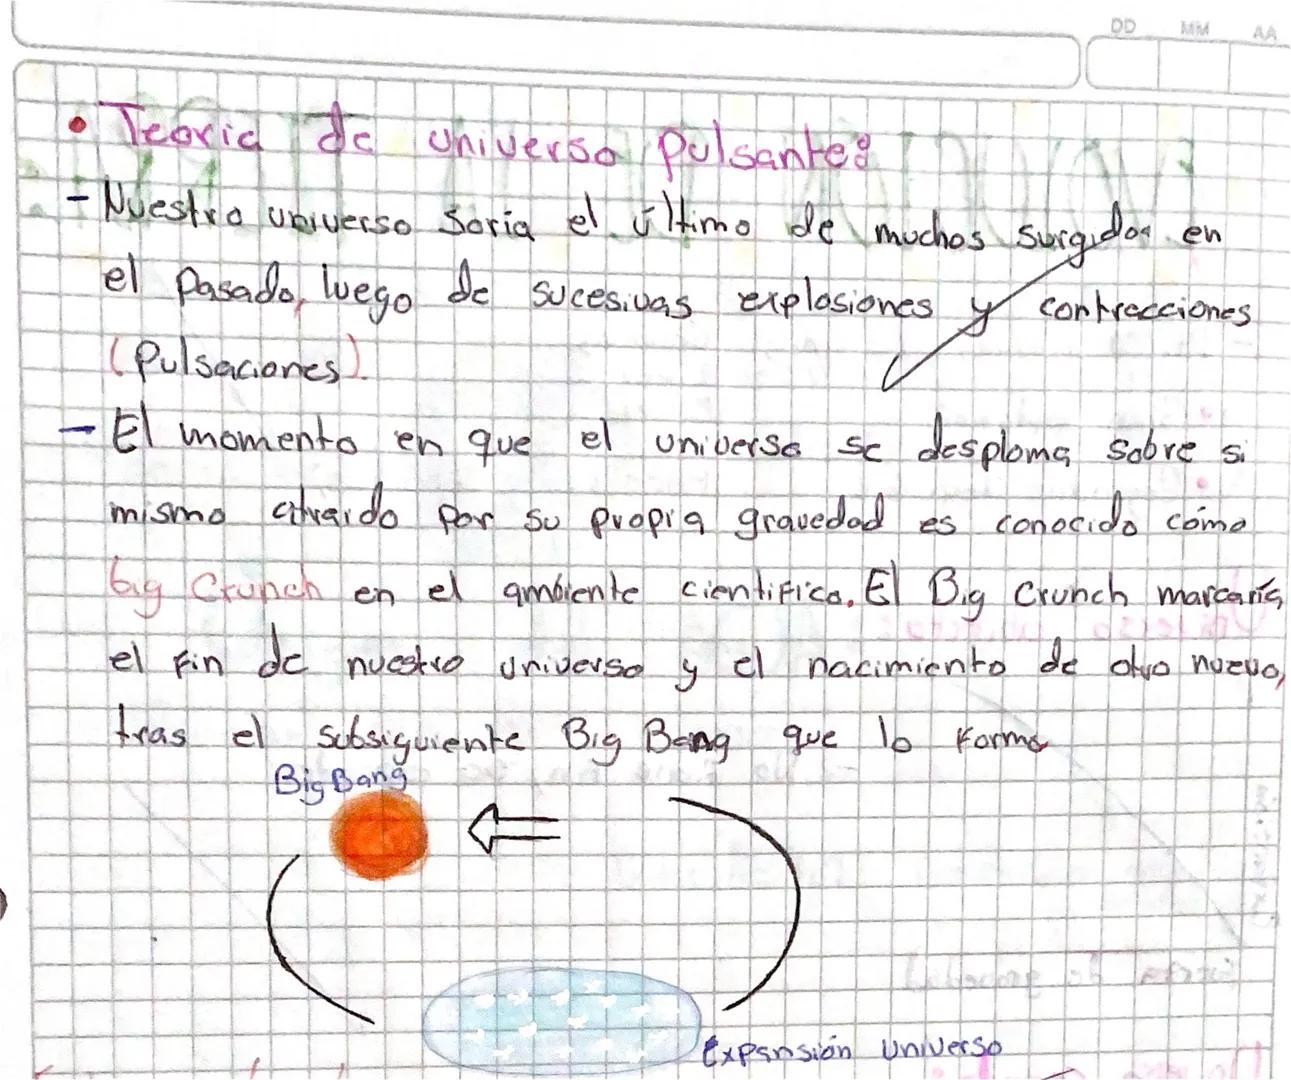 DD MM AA
• Teoria de universo pulsante:
- Nuestro universo soria el último de muchos surgidos en
el pasado, luego de sucesivas explosiones y contracciones
(Pulsaciones).
- El momento en que el universo se desploma sobre si
mismo atraido por su propia gravedad es conocido cómo
big Crunch en el ambiente cientifico. El Big Crunch marcaría
el fin de nuestro universo y el nacimiento de otro nuevo,
tras el subsiguiente Big Bang que lo forma
Big Bang
Expansión Universo